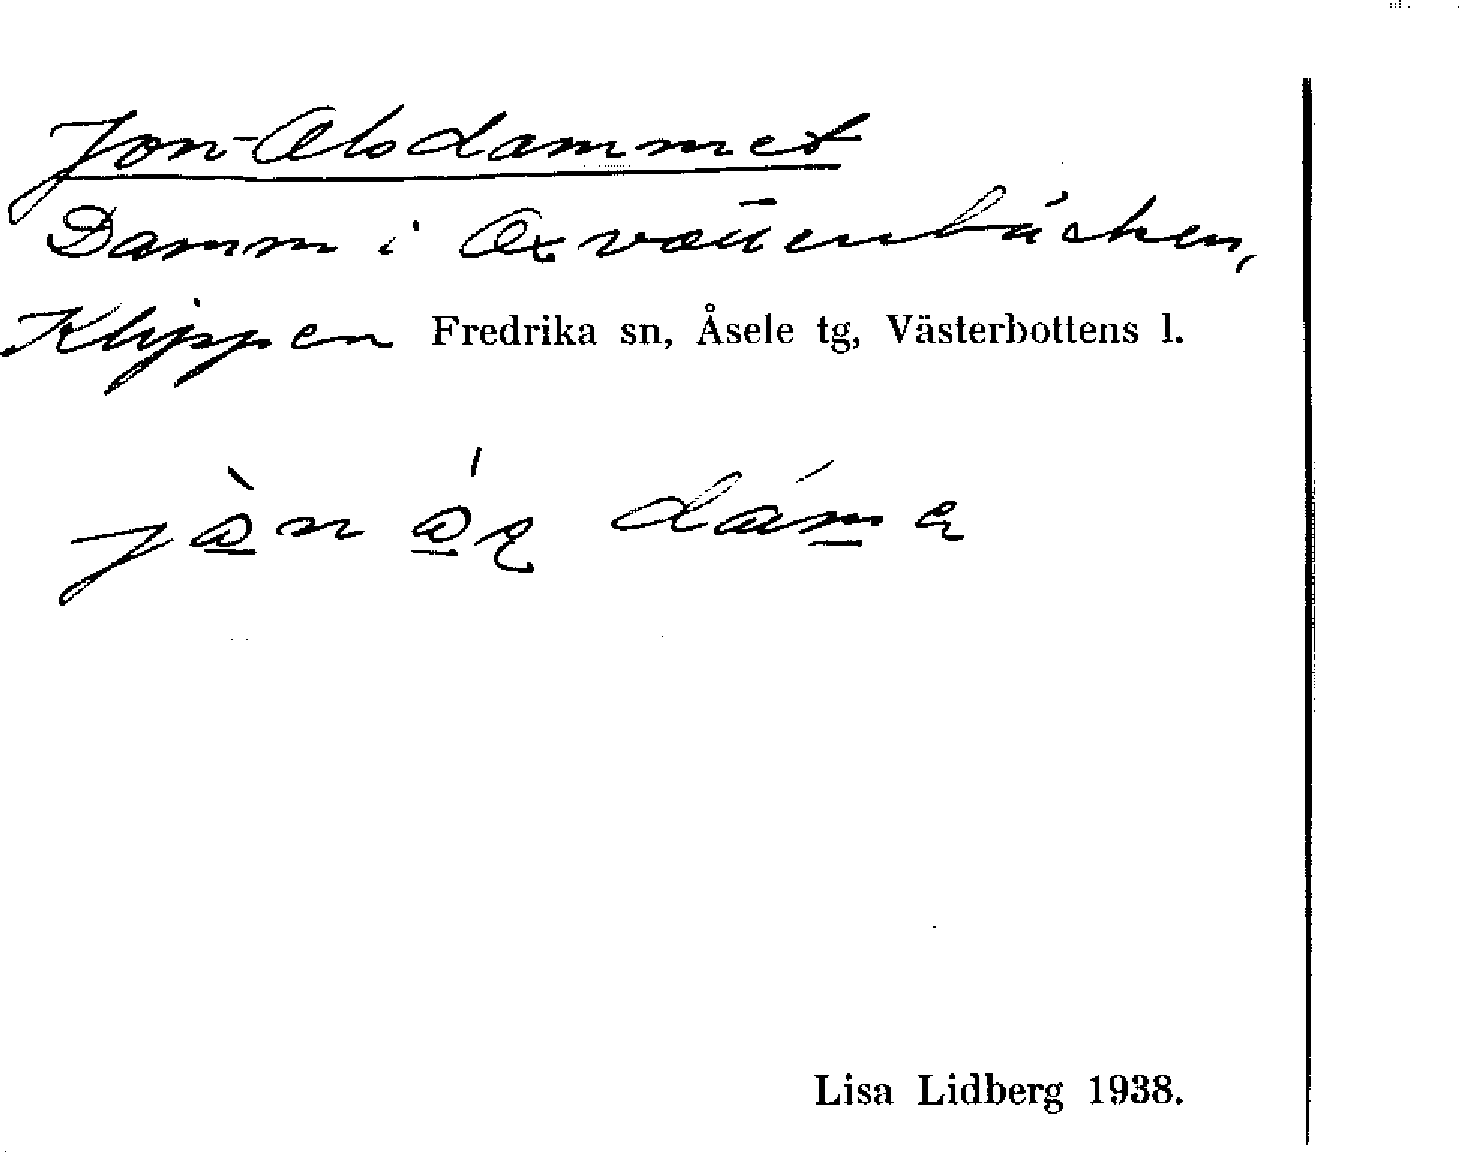 Jon-Olsdammet
Damm i Oxvattenbäcken,
Klippen Fredrika sn, Åsele tg, Västerbottens l.
Lisa Lidberg 1938.